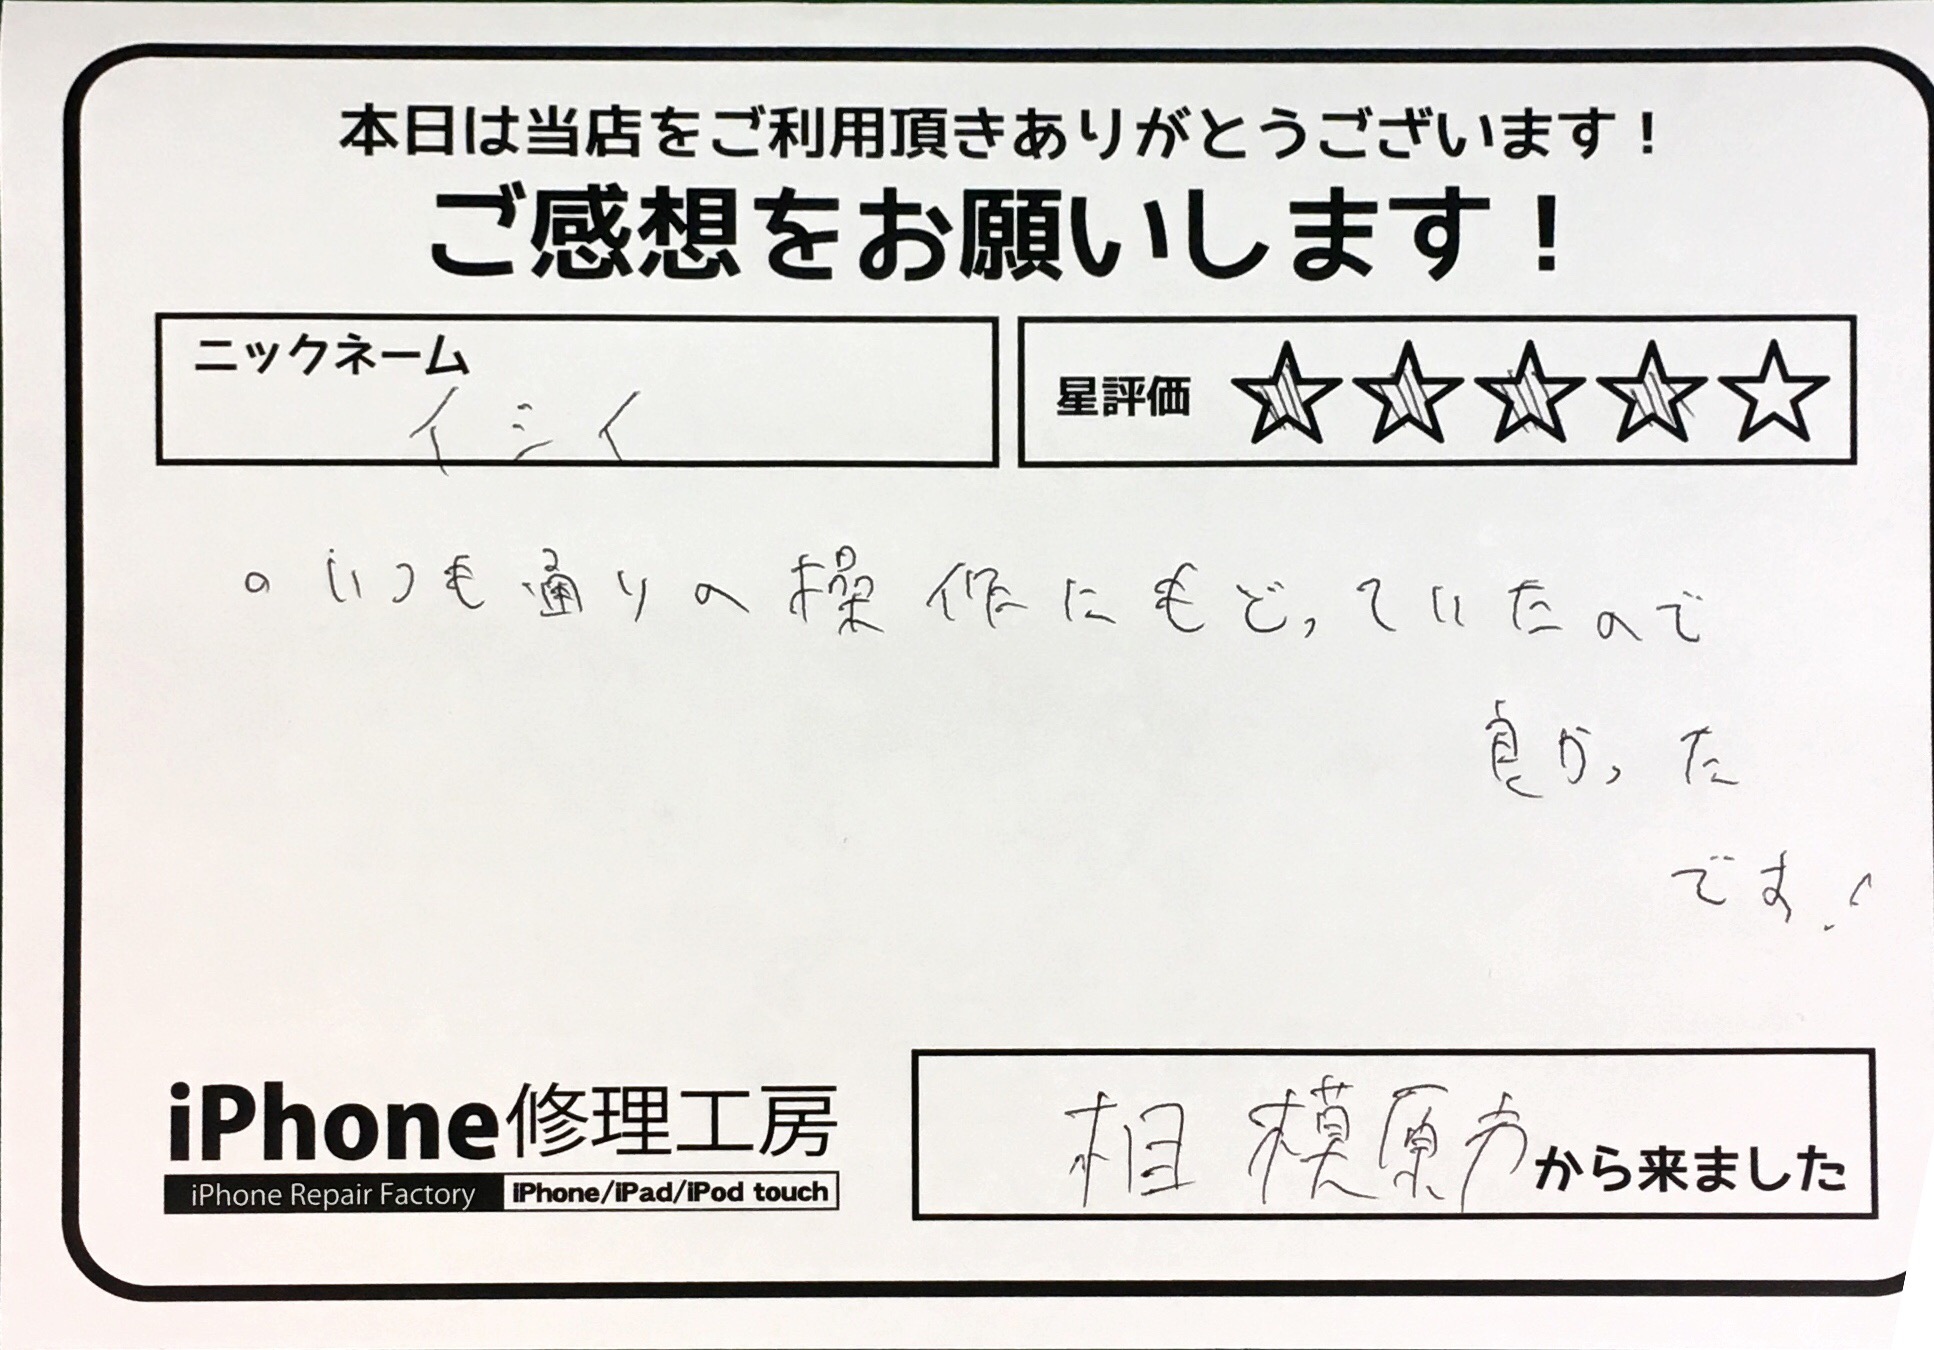 本日は当店をご利用頂きありがとうございます！
ご感想をお願いします！
ニックネーム
イシイ
星評価
。いつも通りの操作にもどっていたので
良かった
です！
iPhone修理工房
iPhone Repair Factory iPhone/iPad/iPod touch
相模原市から来ました